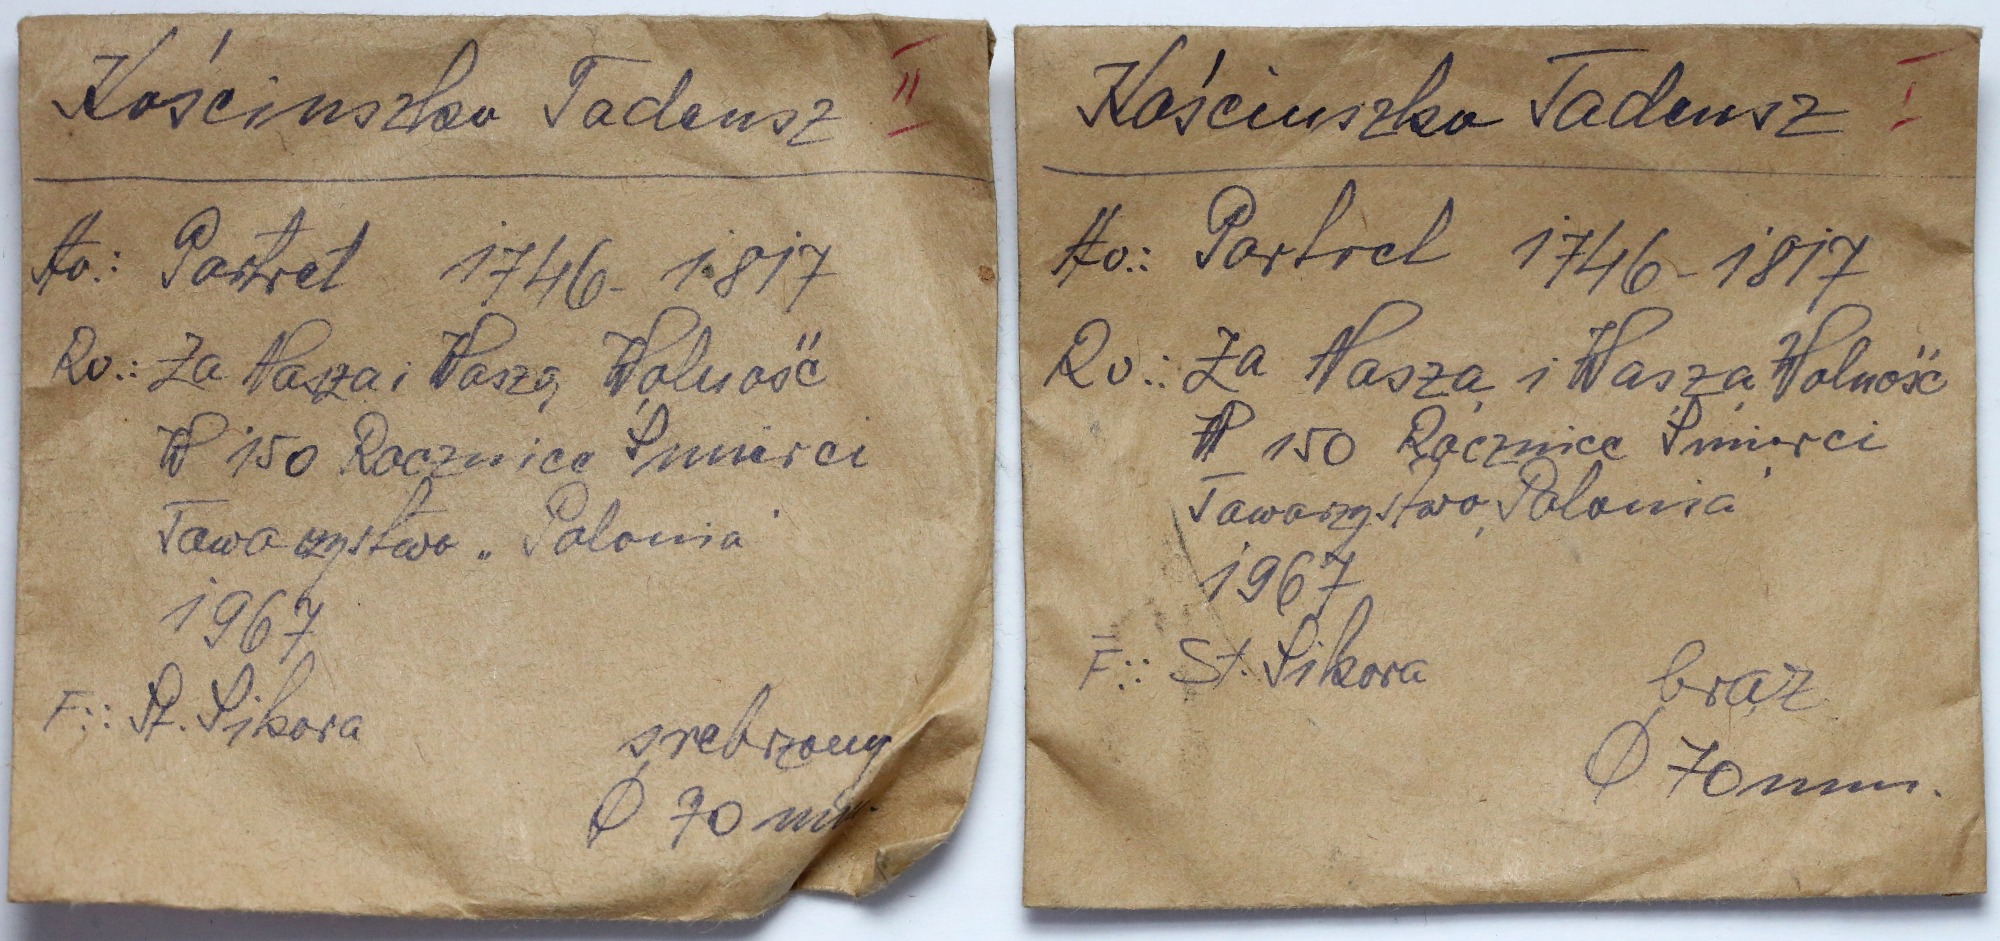 Kościuszko Tadeusz II
Av.: Portret 1746-1817
Rv.: Za Naszą i Waszą Wolność
W 150 Rocznicę Śmierci
Towarzystwo „Polonia"
1967
F.: St. Sikora
srebrzony
Ø 70 mm.
Kościuszko Tadeusz I
Av.: Portret 1746-1817
Rv.: Za Naszą i Waszą Wolność
W 150 Rocznicę Śmierci
Towarzystwo „Polonia"
1967
F.: St. Sikora
brąz
Ø 70 mm.